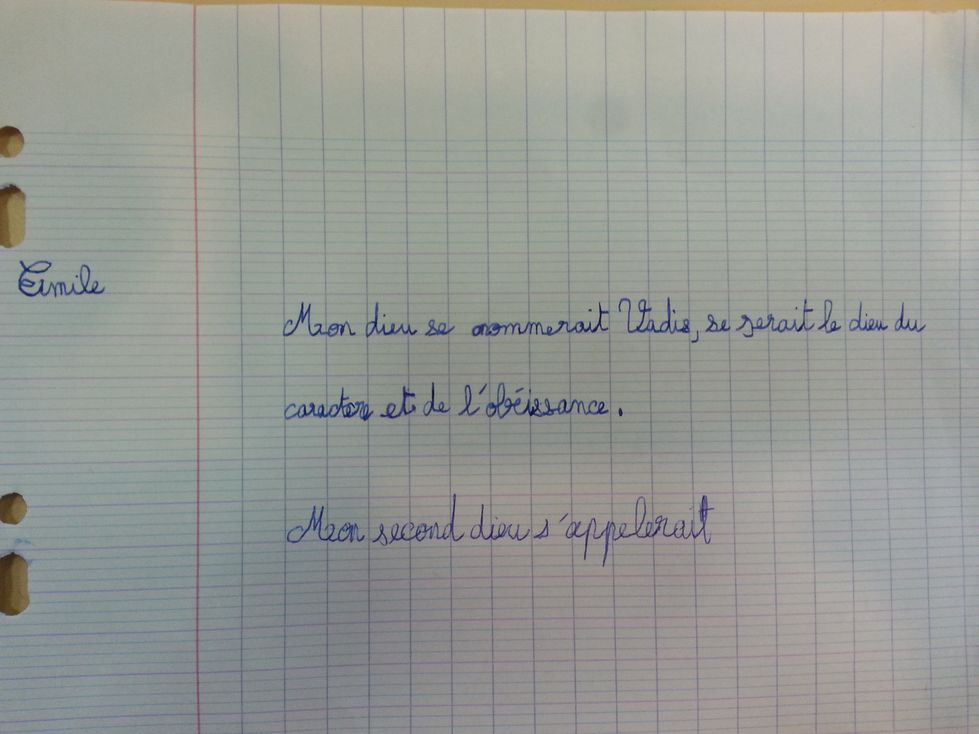 Emile
Mon dieu se nommerait Vadis, se serait le dieu du
caractere et de l'obéissance.
Mon second dieu s'appelerait